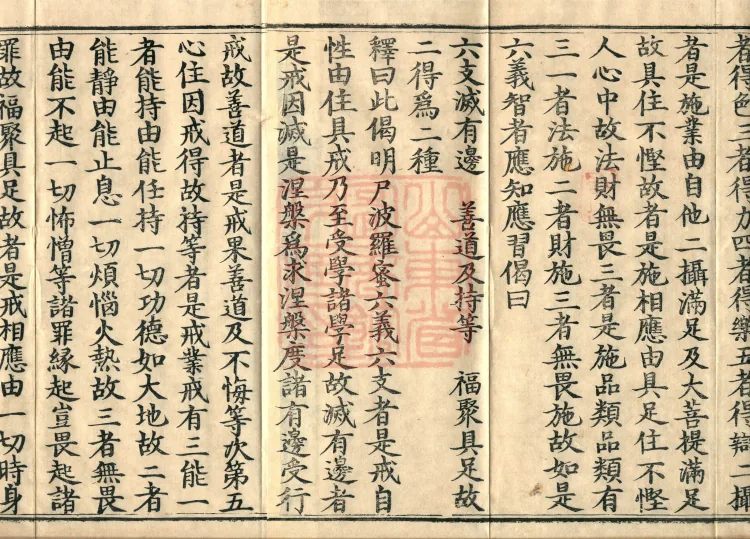 者得色三者得力四者得樂五者得辯二攝
者是施業由自他二攝滿足及大菩提滿足
故具住不慳故者是施相應由具足住不慳
人心中故法財無畏三者是施品類品類有
三一者法施二者財施三者無畏施故如是
六義智者應知應習偈曰
六支滅有邊 善道及持等 福聚具足故
二得爲二種
釋曰此偈明尸波羅蜜六義六支者是戒自
性由住具戒乃至受學諸學足故滅有邊者
是戒因滅是涅槃爲求涅槃度諸有邊受行
戒故善道者是戒果善道及不悔等次第五
心住因戒得故持等者是戒業戒有三能一
者能持由能任持一切功德如大地故二者
能靜由能止息一切煩惱火熱故三者無畏
由能不起一切怖憎等諸罪縁起豈畏起諸
罪故福聚具足故者是戒相應由一切時身